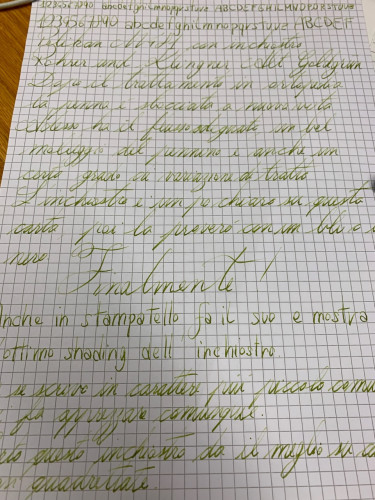 1234567890 abcdefghijklmnopqrstuvz ABCDEFGHIJKLMNOPQRSTUVZ
1234567890 abcdefghijklmnopqrstuvz ABCDEF
Pelikan con inchiostro
Rohrer and Klingner Alt Goldgrun
Dopo il trattamento in
la penna è sbocciata a nuova vita
Adesso ha il flusso adeguato un bel
molleggio del pennino e anche un
certo grado di variazione di tratto
L'inchiostro è un po chiaro su questa
carta poi la proverò con un blu o
nero
Finalmente!
Anche in stampatello fa il suo e mostra
ottimo shading dell'inchiostro.
se scrivo in carattere più piccolo
fa apprezzare comunque.
questo inchiostro da il meglio su
quadrettare.